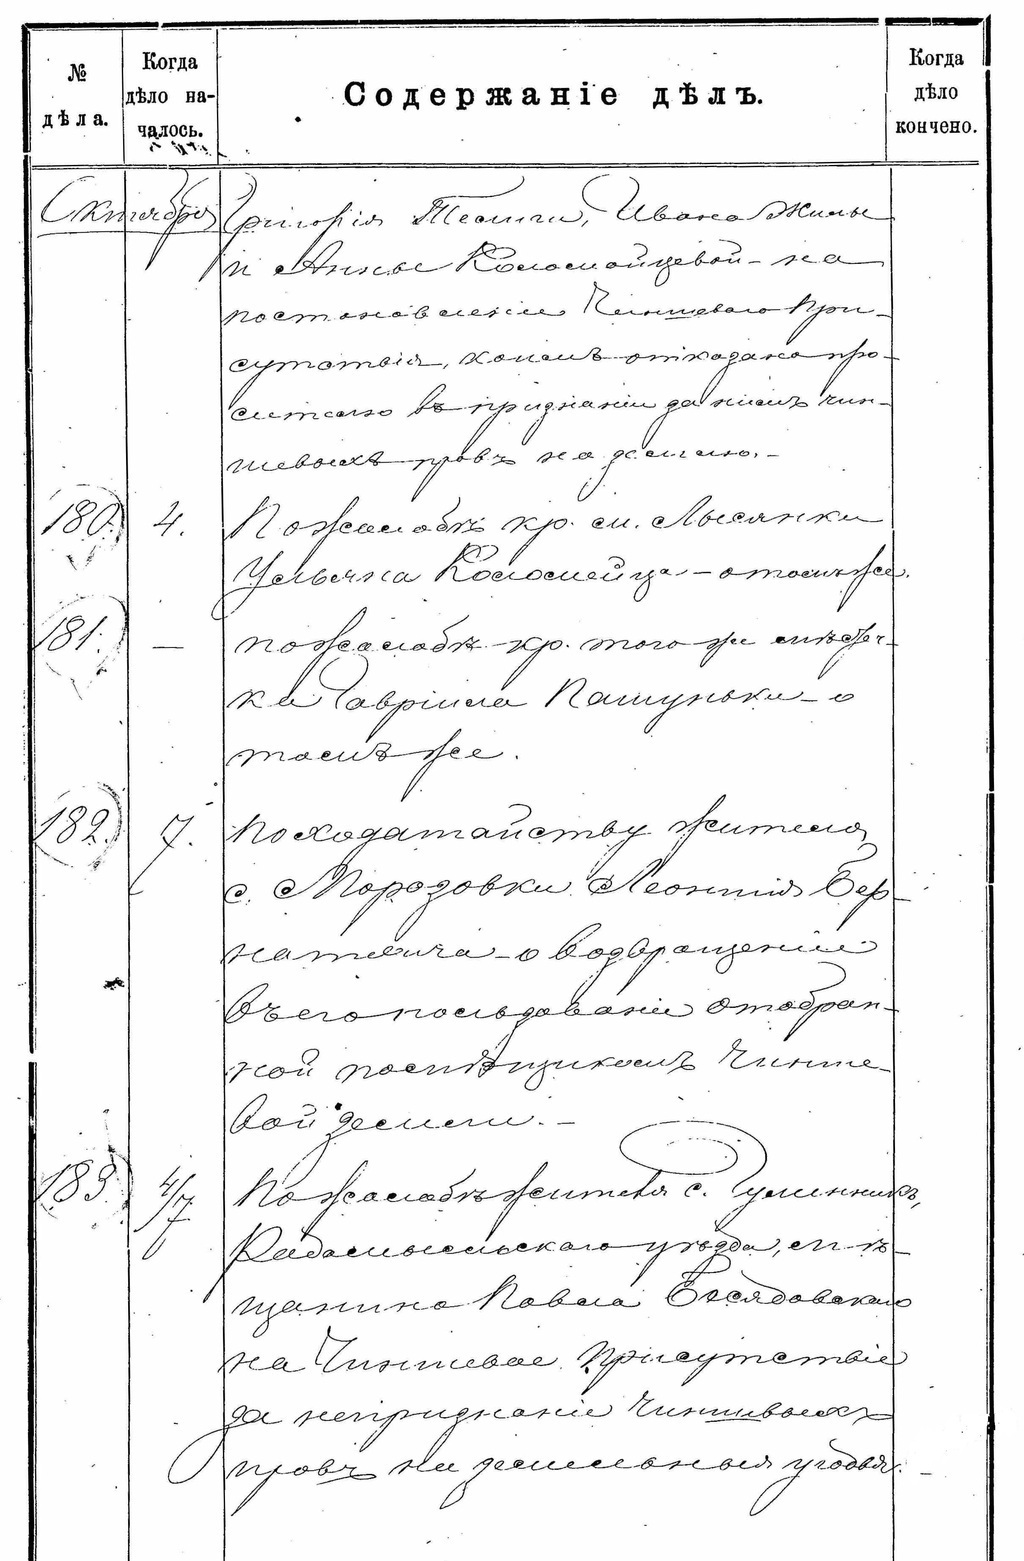 № дѣла.
Когда дѣло на-
чалось.
Содержаніе дѣлъ.
Когда
дѣло
кончено.
Октября
Григорія Теслиги, Ивана Жилы
и Анны Коломойцевой – на
постановленіе Чиншеваго При-
сутствія, коимъ отказано про-
сителю въ признаніи за нимъ чин-
шевыхъ правъ на землю. –
180. 4. По жалобѣ кр. м. Лысянки
Ульяна Коломейца – о томъ же.
181. — по жалобѣ кр. того же мѣстеч-
ка Гавріила Пашуньки – о
томъ же.
182. 7. По ходатайству жителя
с. Морозовки Леонтія Бер-
натовича – о возвращеніи
въ его пользованіе отобран-
ной помѣщикомъ Чинше-
вой земли. –
183. 4/7 По жалобѣ жителя с.
Радомысльскаго уѣзда, мѣ-
щанина Павла Бесядовскаго
на Чиншевое Присутствіе
за непризнаніе Чиншевыхъ
правъ на земельныя угодья. –